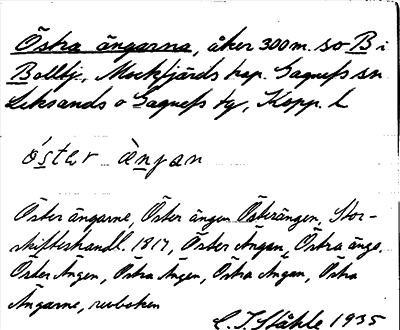 Östra ängarna, åker 300 m. so B i
Bolltj., Mockfjärds kap. Gagnefs sn
Leksands o Gagnefs tg, Kopp. l
öster ängan
Öster ängarne, Öster ängen Österängen, Stor-
skifteshandl. 1817, Öster Ängan, Östra änge,
Öster Ängen, Östra Ängen, Östra Ängan, Östra
Ängarne, renboken
C. I. Ståhle 1935